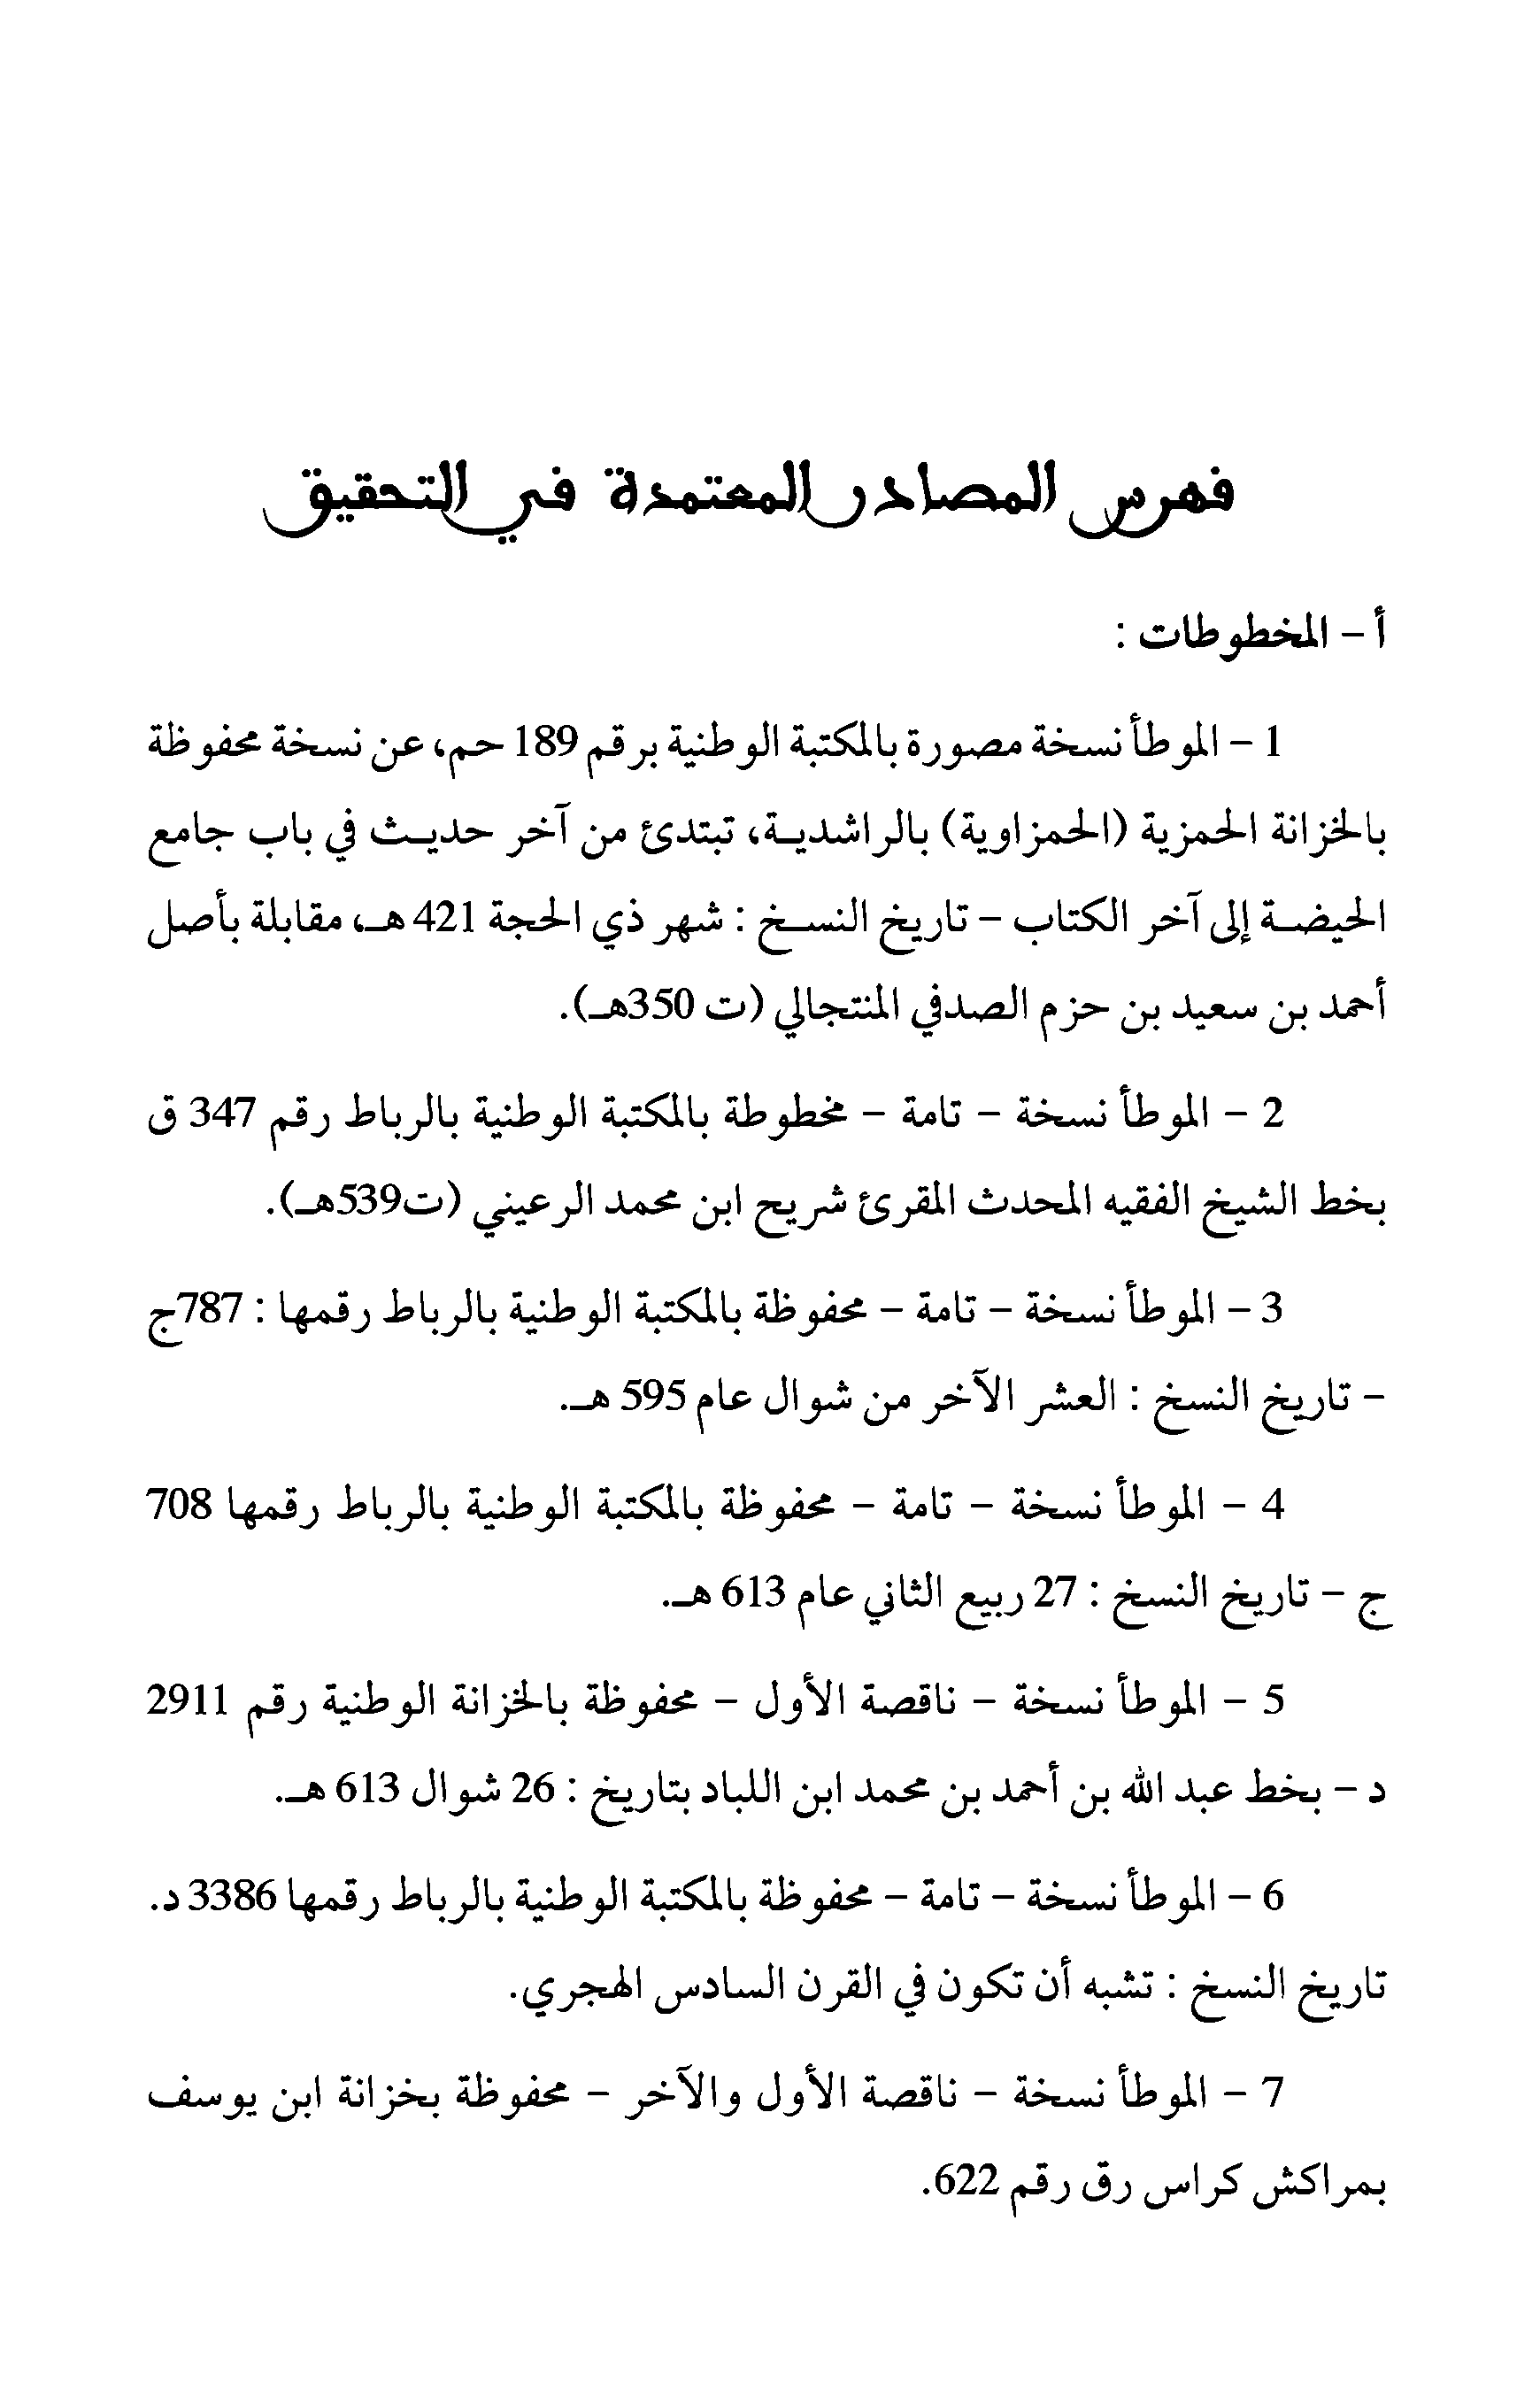 فهرس المصادر المعتمدة في التحقيق
أ - المخطوطات :
1 - الموطأ نسخة مصورة بالمكتبة الوطنية برقم 189 حم، عن نسخة محفوظة
بالخزانة الحمزية (الحمزاوية) بالراشديـة، تبتدئ من آخر حديـث في باب جامع
الحيضـة إلى آخر الكتاب - تاريخ النسـخ : شهر ذي الحجة 421 هـ، مقابلة بأصل
أحمد بن سعيد بن حزم الصدفي المنتجالي (ت 350هـ).
2 - الموطأ نسخة - تامة - مخطوطة بالمكتبة الوطنية بالرباط رقم 347 ق
بخط الشيخ الفقيه المحدث المقرئ شريح ابن محمد الرعيني (ت539هـ).
3 - الموطأ نسخة - تامة - محفوظة بالمكتبة الوطنية بالرباط رقمها : 787ج
- تاريخ النسخ : العشر الآخر من شوال عام 595 هـ.
4 - الموطأ نسخة - تامة - محفوظة بالمكتبة الوطنية بالرباط رقمها 708
ج - تاريخ النسخ : 27 ربيع الثاني عام 613 هـ.
5 - الموطأ نسخة - ناقصة الأول - محفوظة بالخزانة الوطنية رقم 2911
د - بخط عبد الله بن أحمد بن محمد ابن اللباد بتاريخ : 26 شوال 613 هـ.
6 - الموطأ نسخة - تامة - محفوظة بالمكتبة الوطنية بالرباط رقمها 3386 د.
تاريخ النسخ : تشبه أن تكون في القرن السادس الهجري.
7 - الموطأ نسخة - ناقصة الأول والآخر - محفوظة بخزانة ابن يوسف
بمراكش كراس رق رقم 622.